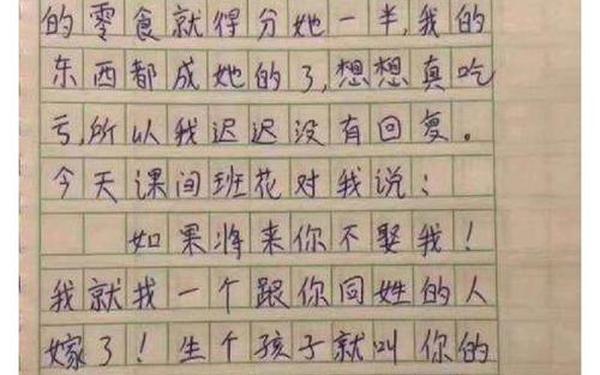 的零食就得分她一半,我的
东西都成她的了,想想真吃
亏,所以我迟迟没有回复。
今天课间班花对我说:
如果将来你不娶我!
我就找一个跟你同姓的人
嫁了!生个孩子就叫你的